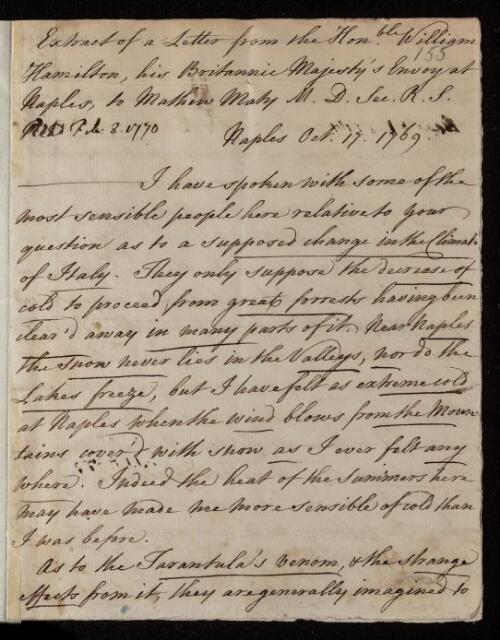 Extract of a Letter from the Hon.ble William
155
Hamilton, his Britannic Majesty's Envoy at
Naples, to Mathew Maty M. D. Sec. R. S.
Feb. 8. 1770 Naples Oct. 17. 1769.
I have spoken with some of the
most sensible people here relative to your
question as to a supposed change in the Climate
of Italy. They only suppose the decrease of
cold to proceed from great forrests having been
clear'd away in many parts of it. Near Naples
the snow never lies in the Valleys, nor do the
Lakes freeze, but I have felt as extreme cold
at Naples when the wind blows from the Moun-
tains cover'd with snow as I ever felt any
where. Indeed the heat of the summers here
may have made me more sensible of cold than
I was before.
As to the Tarantula's venom, & the strange
effects from it, they are generally imagined to